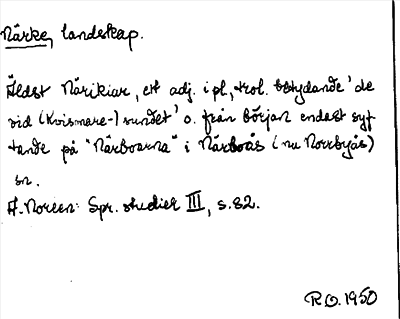 Närke, landskap.
Äldst Närikiar, ett adj. i pl., trol. betydande 'de
vid (Kvismare-) sundet' o. från början endast syf-
tande på "Närboarna" i Närboås (nu Norrbyås)
sn.
A. Noreen: Spr. studier III, s. 82.
R.O. 1950